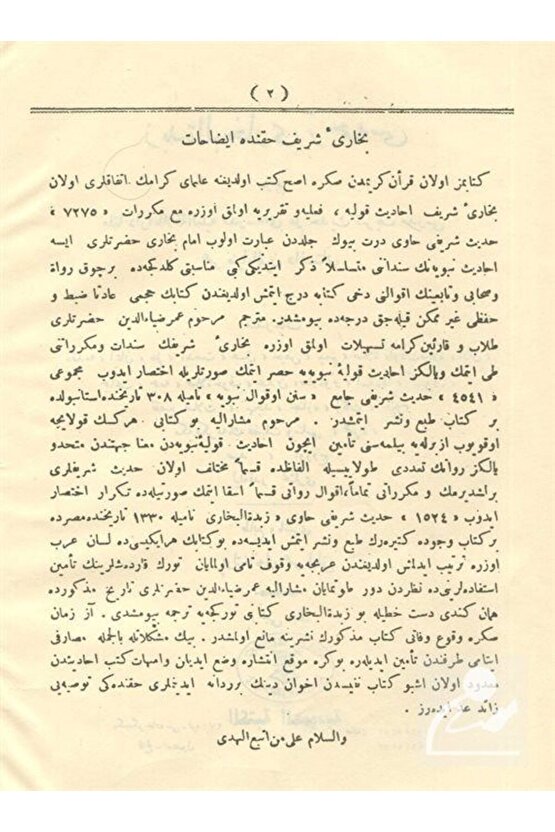 ( ٢ )
بخارئ شریف حقنده ایضاحات
كتابمز اولان قرآن كریمدن صكره اصح كتب اولدیغنه علمای كرامك اتفاقلری اولان
بخارئ شریف احادیث قولیه ، فعلیه و تقریریه اولمق اوزره مع مكررات « ٧٢٧٥ »
حدیث شریفی حاوی درت بیوك جلددن عبارت اولوب امام بخاری حضرتلری ایسه
احادیث نبویه‌نك سنداتی متسلسلاً ذكر ایتدیكی كبی مناسبتی كلدكجه‌ده برچوق رواة
وصحابی وتابعینك اقوالنی دخی كتابه درج ایتمش اولدیغندن كتابك حجمی عادتا ضبط و
حفظی غیر ممكن قیله‌جق درجه‌ده بیومشدر. مترجم مرحوم عمرضیاءالدین حضرتلری
طلاب و قارئین كرامه تسهیلات اولمق اوزره بخارئ شریفك سندات ومكرراتنی
طی ایتمك ویالكز احادیث قولیهٔ نبویه‌یه حصر ایتمك صورتلریله اختصار ایدوب مجموعی
« ٤٥٤١ » حدیث شریفی جامع « سنن اوقوال نبویه » نامیله ٣٠٨ تاریخنده استانبولده
بر كتاب طبع ونشر ایتمشدر . مرحوم مشارالیه بو كتابی هركسك قولایجه
اوقویوب ازبرله‌یه بیلمه‌سنی تأمین ایچون احادیث قولیهٔ نبویه‌دن معنا جهتندن متحدو
یالكز رواتك تعددی طولاییسیله الفاظده قسماً مختلف اولان حدیث شریفلری
براشدیرمك و مكرراتی تماماً، اقوال رواتی قسماً اسقا ایتمك صورتیله‌ده تكرار اختصار
ایدوب « ١٥٢٤ » حدیث شریفی حاوی « زبدةالبخاری نامیله ١٣٣٠ تاریخنده مصرده
بركتاب وجوده كتیره‌رك طبع ونشر ایتمش ایدیسه‌ده بوكتابك هرایكیسی‌ده لسان عرب
اوزره ترتیب ایدلمش اولدیغندن عربجه‌یه وقوف تامی اولمایان تورك قارده‌شلرینك تأمین
استفاده‌لرینی‌ده نظردن دور طوتمایان مشارالیه عمرضیاءالدین حضرتلری تاریخ مذكورده
همان كندی دست خطیله بو زبدةالبخاری كتابنی توركجه‌یه ترجمه بیورمشدی . آز زمان
صكره وقوع وفاتی كتاب مذكورك نشرینه مانع اولمشدر . بیك مشكلاتله بالجمله مصارفی
ایتامی طرفندن تأمین ایدیله‌رك بوكره موقع انتشاره وضع ایدیان وامهات كتب احادیثدن
معدود اولان اشبو كتاب نفیسدن اخوان دینك برردانه ایدینملری حقنده‌كی توصیه‌یی
زائد عد ایده‌رز .
والسلام علی من اتبع الهدی